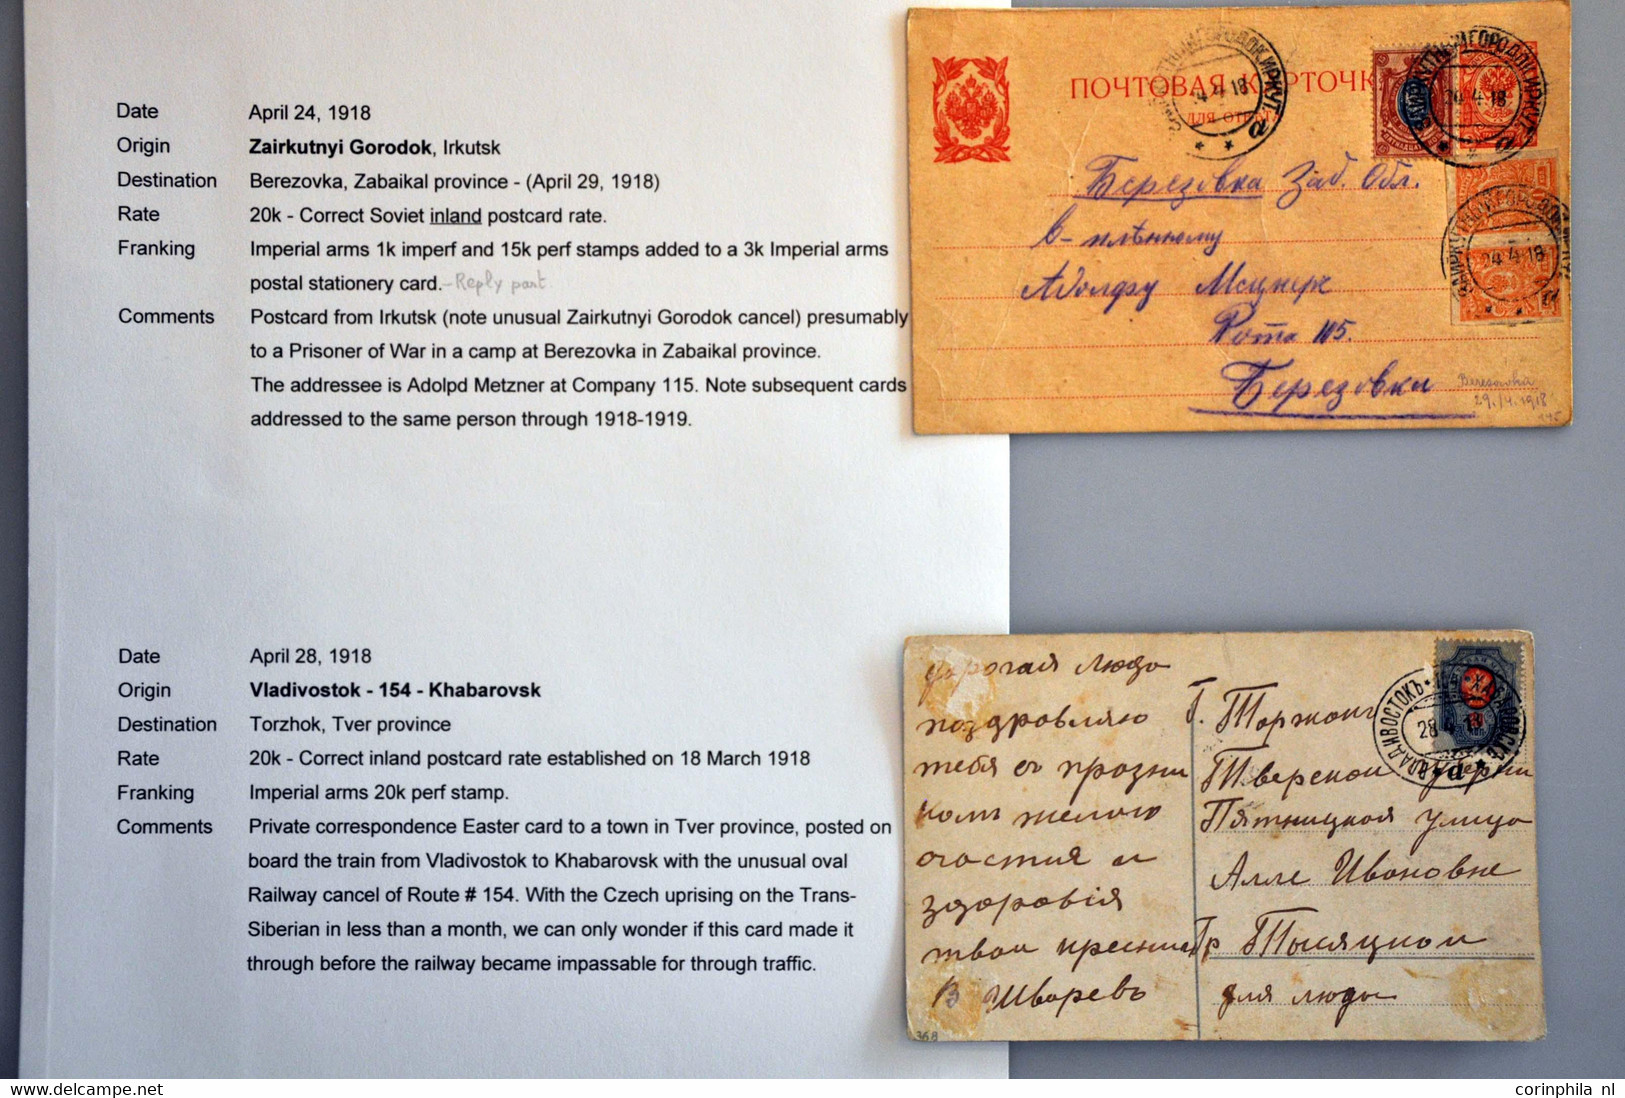 Date April 24, 1918
Origin Zairkutnyi Gorodok, Irkutsk
Destination Berezovka, Zabaikal province - (April 29, 1918)
Rate 20k - Correct Soviet inland postcard rate.
Franking Imperial arms 1k imperf and 15k perf stamps added to a 3k Imperial arms
postal stationery card. - Reply part
Comments Postcard from Irkutsk (note unusual Zairkutnyi Gorodok cancel) presumably
to a Prisoner of War in a camp at Berezovka in Zabaikal province.
The addressee is Adolpd Metzner at Company 115. Note subsequent cards
addressed to the same person through 1918-1919.
ПОЧТОВАЯ КАРТОЧК
ДЛЯ ОТВѢТА
24 4 18
24 4 18
Березовка Заб. Обл.
В-плѣнному
Адолфу Мецнерк
Рота 115.
Березовка
Beresowka
29./4. 1918
Date April 28, 1918
Origin Vladivostok - 154 - Khabarovsk
Destination Torzhok, Tver province
Rate 20k - Correct inland postcard rate established on 18 March 1918
Franking Imperial arms 20k perf stamp.
Comments Private correspondence Easter card to a town in Tver province, posted on
board the train from Vladivostok to Khabarovsk with the unusual oval
Railway cancel of Route # 154. With the Czech uprising on the Trans-
Siberian in less than a month, we can only wonder if this card made it
through before the railway became impassable for through traffic.
дорогая Люда
поздравляю
тебя съ праздни
комъ желаю
счастия и
здоровія
твои
В Шваревъ
368
ВЛАДИВОСТОКЪ
28 4 18
Г. Торжокъ
Тверской губерни
Пятницкая улица
Алле Ивановне
Тысяцкой
для люды
corinphila nl